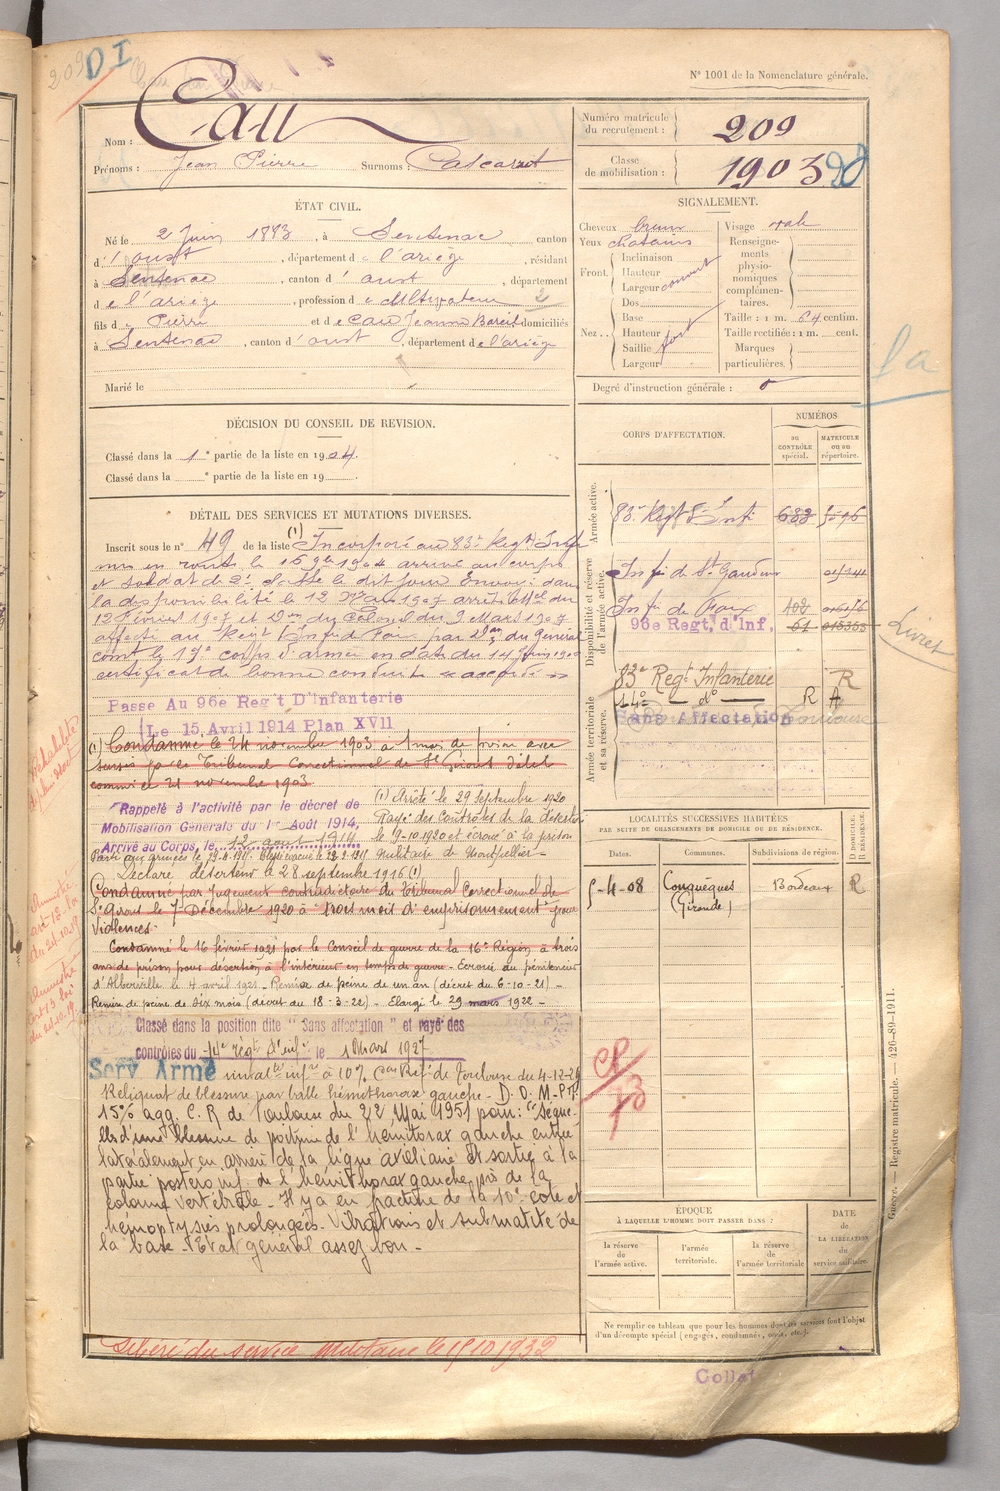 209
DI
N° 1001 de la Nomenclature générale.
Nom : Cau
Prénoms : Jean Pierre Surnoms : Cascarret
Numéro matricule du recrutement : 209
Classe de mobilisation : 1903
ÉTAT CIVIL.
Né le 2 Juin 1883, à Sentenac canton
d'oust, département de l'ariège, résidant
à Sentenac, canton d'oust, département
de l'ariège, profession de cultivateur 2
fils de Pierre et de Cau Jeanne Bareil domiciliés
à Sentenac, canton d'oust, département de l'ariège
Marié le
SIGNALEMENT.
Cheveux bruns
Yeux chatains
Front. Inclinaison
Hauteur
Largeur couvert
Nez. Dos
Base
Hauteur fort
Saillie
Largeur
Visage ovale
Renseignements physionomiques complémentaires.
Taille : 1 m. 64 centim.
Taille rectifiée : 1 m. cent.
Marques particulières.
Degré d'instruction générale : 0
la
DÉCISION DU CONSEIL DE REVISION.
Classé dans la 1e partie de la liste en 1904.
Classé dans la e partie de la liste en 19
DÉTAIL DES SERVICES ET MUTATIONS DIVERSES.
Inscrit sous le n° 49 de la liste (1) Incorporé au 83e Regt Inf
mis en route le 16 9bre 1904 arrivé au corps
et soldat de 2e classe le dit jour Envoi dans
la disponibilité le 12 Mars 1907 arrêté Mel du
12 Février 1907 et Don du Colonel du 9 Mars 1907
affecté au Regt Inf de Foix par Don du Général
comt le 17e corps d'armée en date du 14 Juin 1909
certificat de bonne conduite accordé
Passe Au 96e Reg't D'Infanterie
Le 15 Avril 1914 Plan XVII
(1) Condamné le 24 novembre 1903 à 1 mois de prison avec
sursis par le Tribunal Correctionnel de St Girons délit
commis le 21 novembre 1903
Réhabilité de plein droit
Rappelé à l'activité par le décret de
Mobilisation Générale du 1er Août 1914,
Arrivé au Corps, le 12 août 1914
(1) Arrêté le 29 Septembre 1920
Rayé des Contrôles de la désertion
le 9-10-1920 et écroué à la prison
militaire de Montpellier -
Déclaré déserteur le 28 septembre 1916 (1)
Condamné par Jugement contradictoire du Tribunal Correctionnel de
St Girons le 7 Décembre 1920 à trois mois d'emprisonnement pour
violences.
Condamné le 16 février 1921 par le Conseil de guerre de la 16e Région à trois
ans de prison pour désertion à l'intérieur en temps de guerre - Ecroué au pénitencier
d'Albertville le 4 avril 1921 - Remise de peine de un an (décret du 6-10-21) -
Remise de peine de six mois (décret du 18-3-22) - Elargi le 29 mars 1922 -
Classé dans la position dite " Sans affectation " et rayé des
contrôles du 14e régt d'infie le 1 Mars 1927
Serv Armé
Reliquat de blessure par balle hémithorax gauche -
15% agg. C. R de Toulouse du 22 Mai 1951 pour : "Séque-
lles d'une blessure de poitrine de l'hémithorax gauche entrée
latéralement en arrière de la ligne axillaire et sortie à la
partie postéro inf. de l'hémithorax gauche près de la
colonne vertébrale - Il y a eu fracture de la 10e côte et
hémoptysies prolongées. Vibrations et submatité de
la base. Etat général assez bon. -
Libéré du service Militaire le 15.10.1932
CORPS D'AFFECTATION.
NUMÉROS
au contrôle spécial.
matricule ou au répertoire.
Armée active.
83e Regt d'Inf 683
Disponibilité et réserve de l'armée active.
Inf de St Gaudens
Inf de Foix 102
96e Regt, d'Inf, 61 015363
Livret
Armée territoriale et sa réserve.
83e Regt Infanterie R
14e - do - R A
Sans Affectation
LOCALITÉS SUCCESSIVES HABITÉES
PAR SUITE DE CHANGEMENTS DE DOMICILE OU DE RÉSIDENCE.
Dates. Communes. Subdivisions de région. D DOMICILE. R RÉSIDENCE.
5-4-08 Conquèques (Gironde) Bordeaux R
Guerre. — Registre matricule. — 426-89-1911.
ÉPOQUE
À LAQUELLE L'HOMME DOIT PASSER DANS :
la réserve de l'armée active.
l'armée territoriale.
la réserve de l'armée territoriale
DATE DE LA LIBÉRATION du service militaire.
Ne remplir ce tableau que pour les hommes dont les services font l'objet
d'un décompte spécial (engagés, condamnés, omis, etc.).